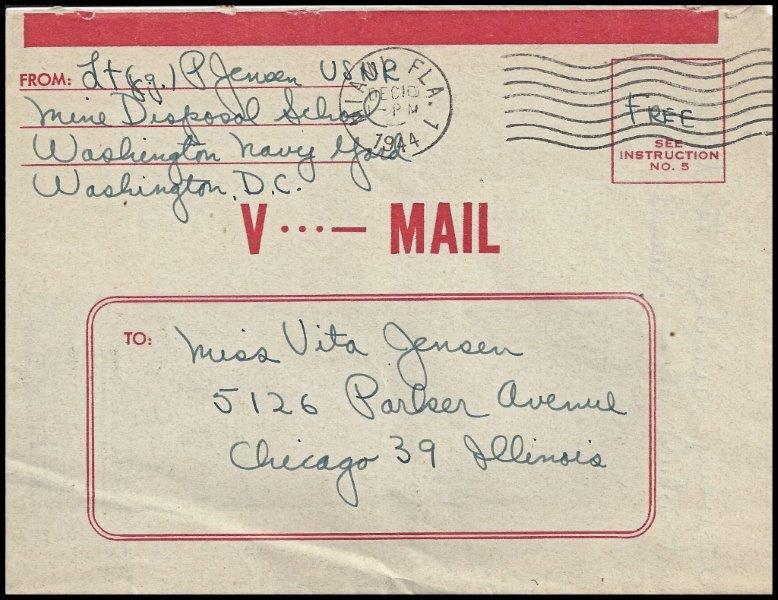 FROM: Lt (jg.) P Jensen USNR
Mine Disposal School
Washington Navy Yard
Washington, D.C.
MIAMI, FLA. 1
DEC 10
PM
1944
FREE
SEE
INSTRUCTION
NO. 5
V ···— MAIL
TO: Miss Vita Jensen
5126 Parker Avenue
Chicago 39 Illinois